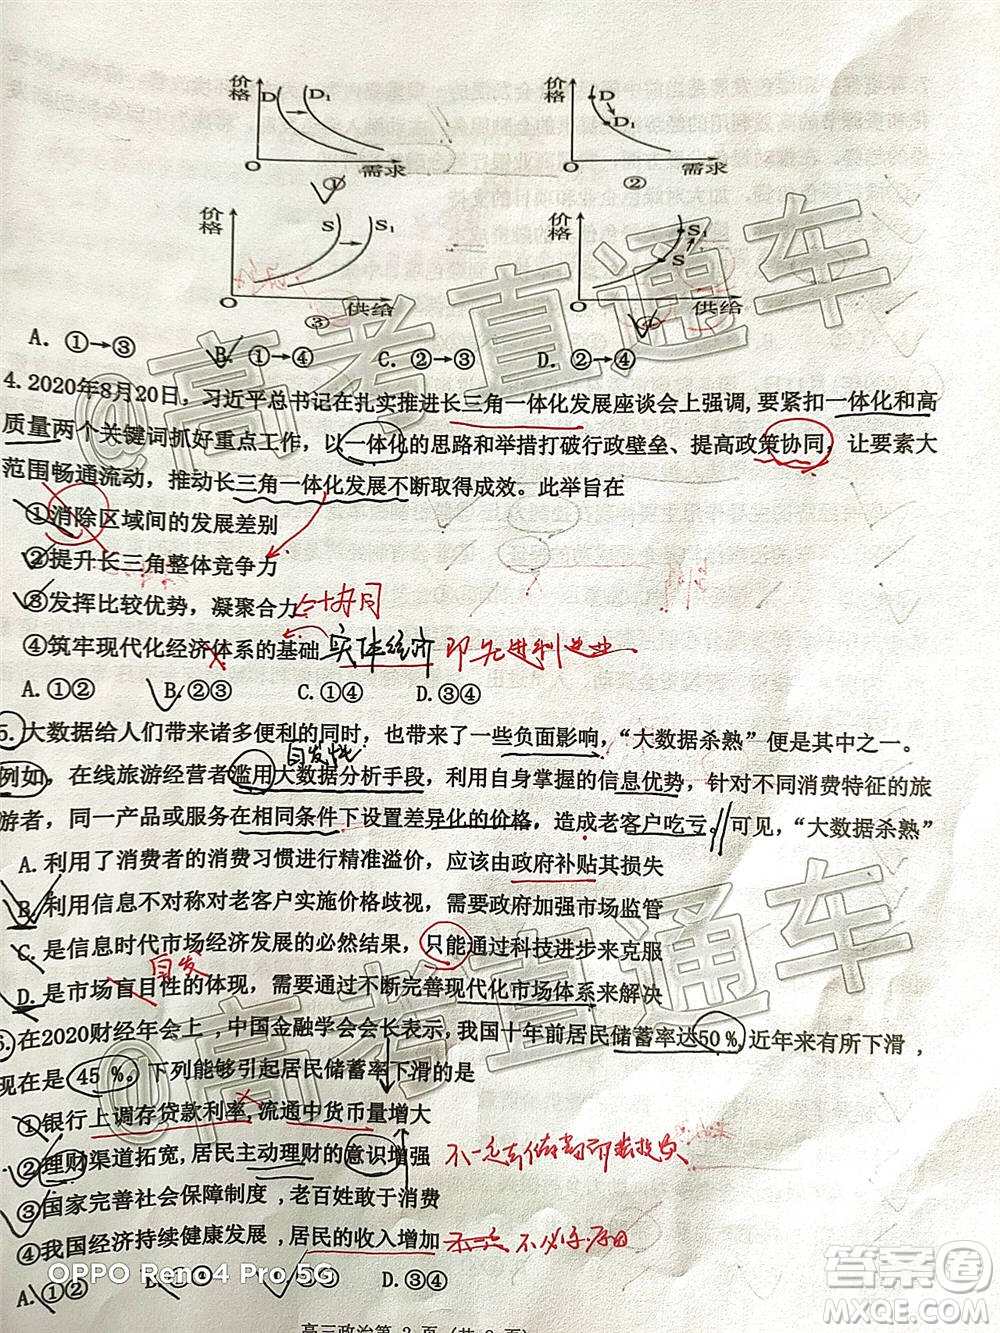 价格 D D₁ O 需求 ①
价格 D D₁ O 需求 ②
价格 S S₁ O 供给 ③
价格 S S₁ O 供给 ④
A. ①→③ B. ①→④ C. ②→③ D. ②→④
4.2020年8月20日，习近平总书记在扎实推进长三角一体化发展座谈会上强调,要紧扣一体化和高
质量两个关键词抓好重点工作，以一体化的思路和举措打破行政壁垒、提高政策协同，让要素大
范围畅通流动，推动长三角一体化发展不断取得成效。此举旨在
①消除区域间的发展差别
②提升长三角整体竞争力
③发挥比较优势，凝聚合力 协同
④筑牢现代化经济体系的基础 实体经济 即先进制造业
A.①② B.②③ C.①④ D.③④
5.大数据给人们带来诸多便利的同时，也带来了一些负面影响，“大数据杀熟”便是其中之一。
例如，在线旅游经营者滥用大数据分析手段，利用自身掌握的信息优势，针对不同消费特征的旅
游者，同一产品或服务在相同条件下设置差异化的价格，造成老客户吃亏。可见，“大数据杀熟”
A.利用了消费者的消费习惯进行精准溢价，应该由政府补贴其损失
B.利用信息不对称对老客户实施价格歧视，需要政府加强市场监管
C.是信息时代市场经济发展的必然结果，只能通过科技进步来克服
自发
D.是市场盲目性的体现，需要通过不断完善现代化市场体系来解决
6.在2020财经年会上,中国金融学会会长表示,我国十年前居民储蓄率达50%,近年来有所下滑,
现在是45%。下列能够引起居民储蓄率下滑的是
①银行上调存贷款利率,流通中货币量增大
②理财渠道拓宽,居民主动理财的意识增强
③国家完善社会保障制度,老百姓敢于消费
④我国经济持续健康发展,居民的收入增加
A.①② D.③④
OPPO Reno4 Pro 5G
高三政治第 2 页
@高考直通车
@高考直通车
答案圈
MXQE.COM